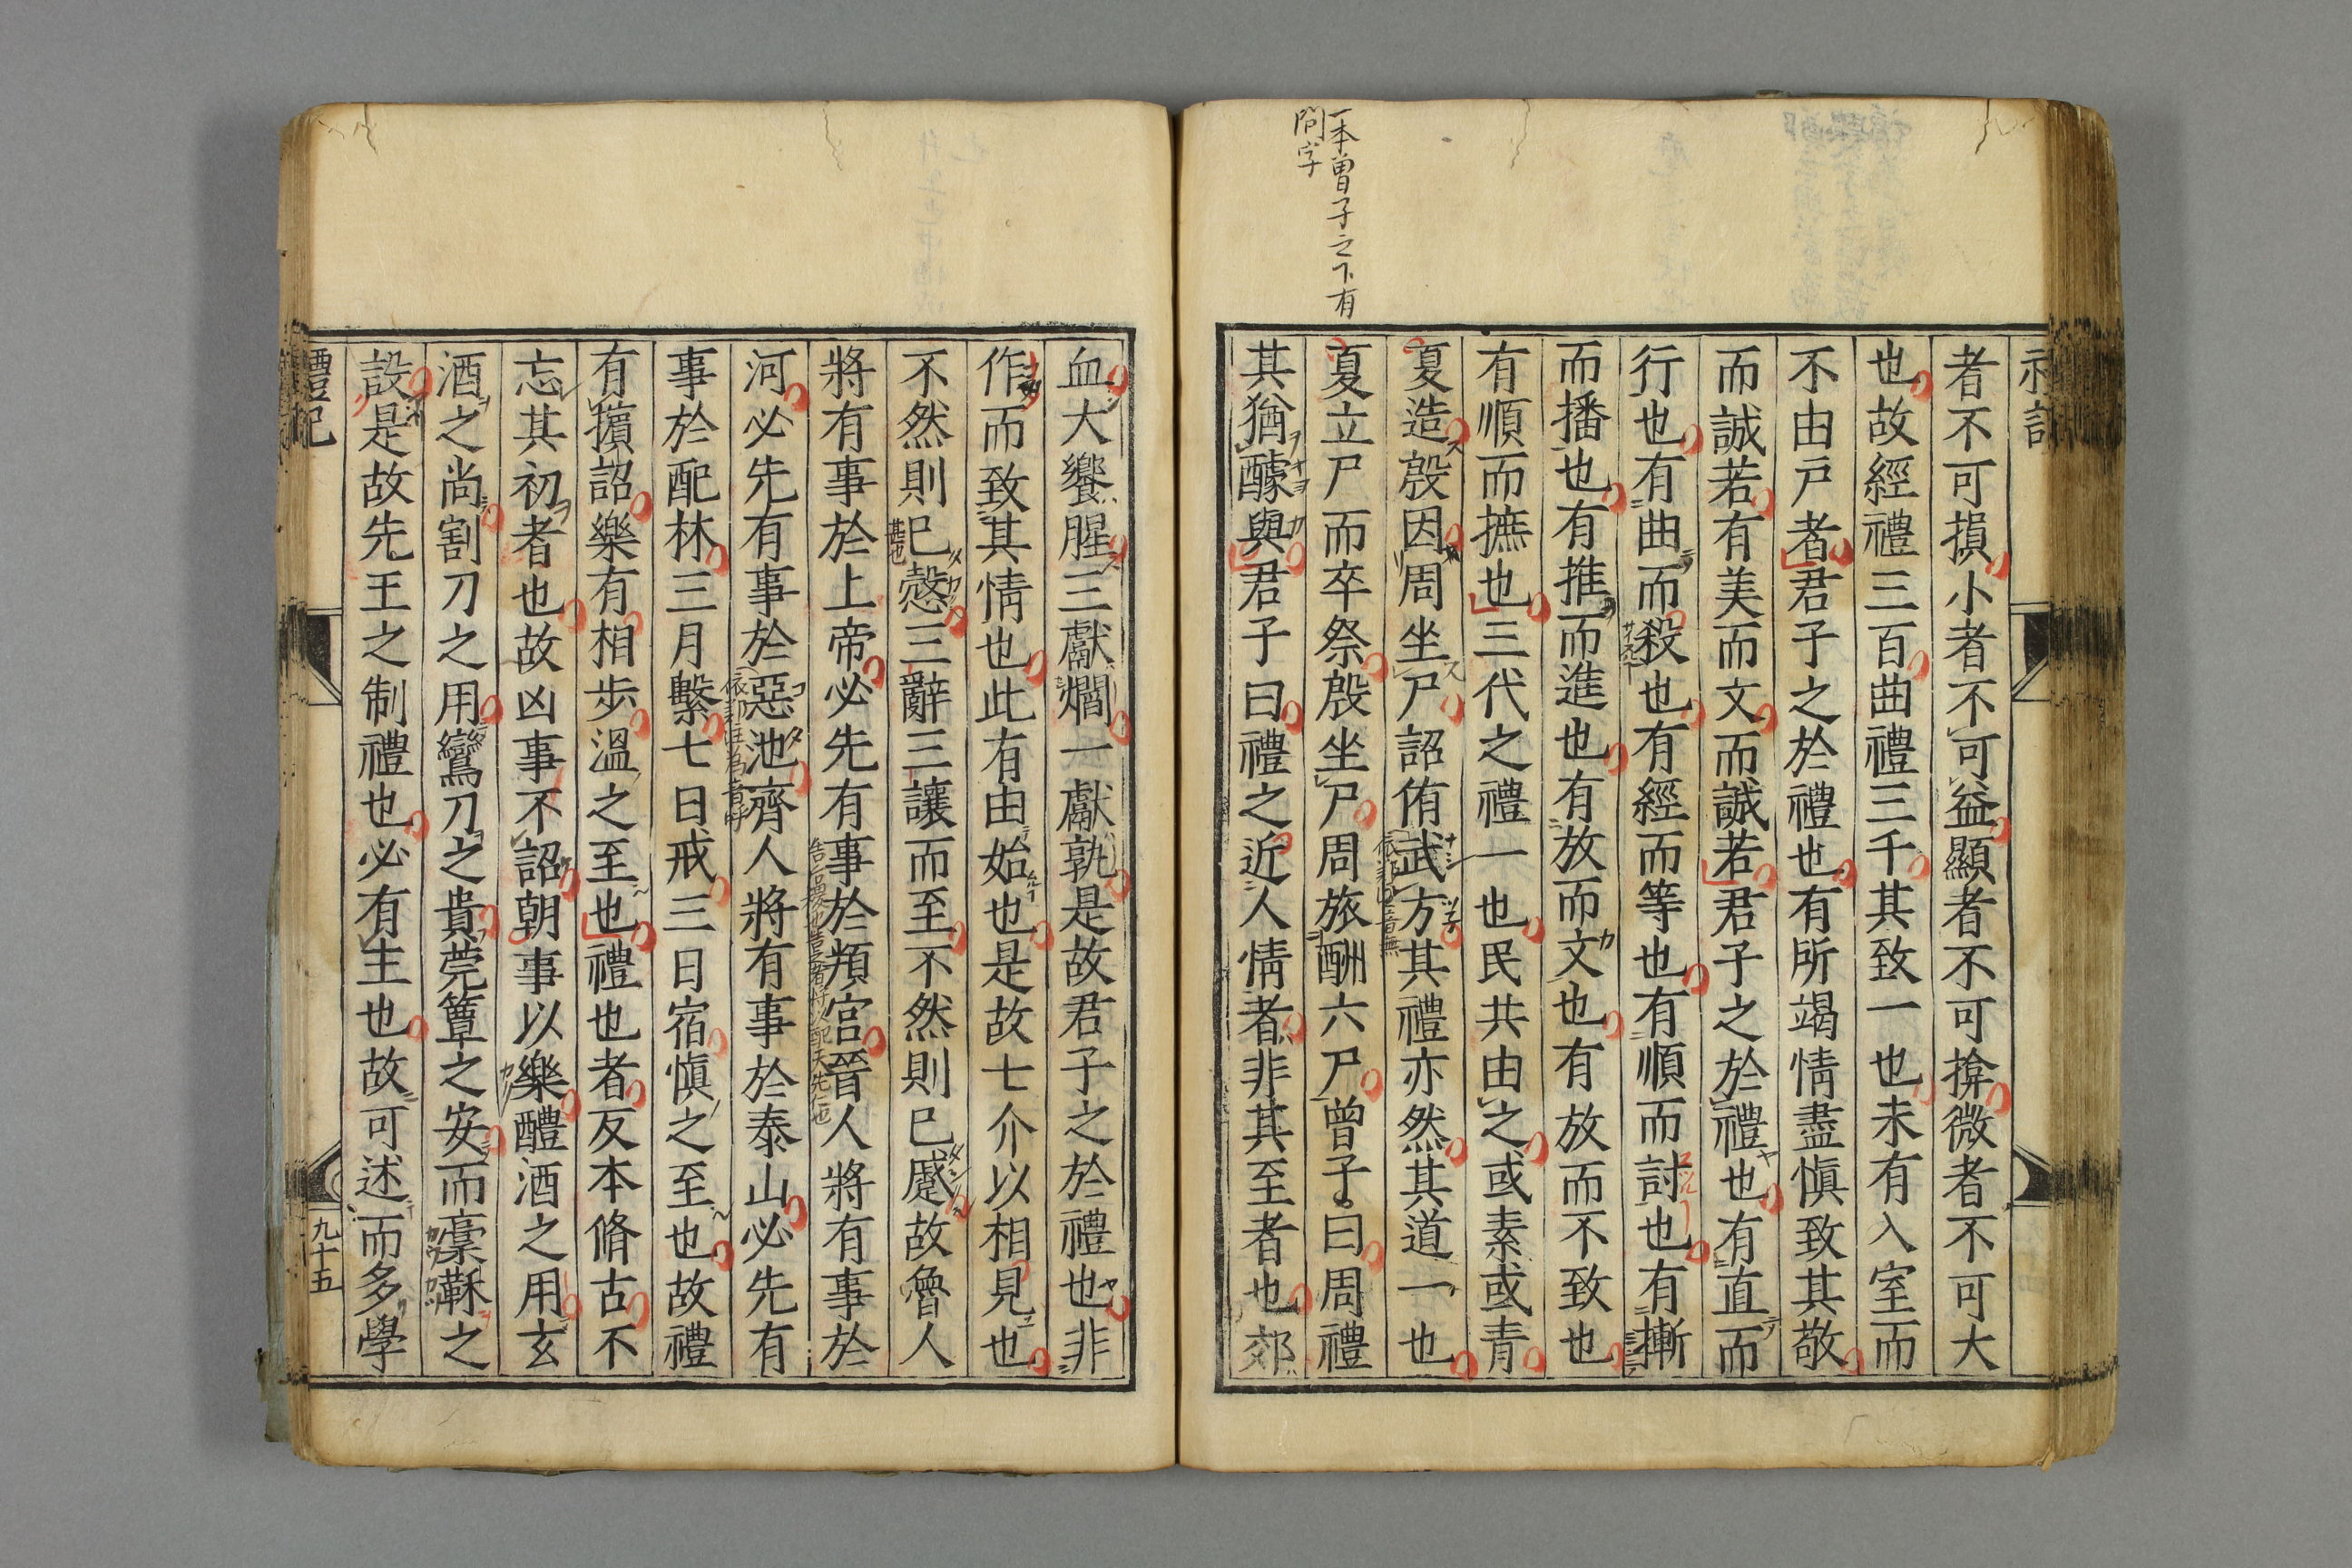 一本曽子之下有
問字
者不可損小者不可益顯者不可揜微者不可大
也故經禮三百曲禮三千其致一也未有入室而
不由戶者君子之於禮也有所竭情盡愼致其敬
而誠若有美而文而誠若君子之於禮也有直而
行也有曲而殺也有經而等也有順而討也有摲
而播也有推而進也有放而文也有放而不致也
有順而摭也三代之禮一也民共由之或素或青
夏造殷因周坐尸詔侑武方其禮亦然其道一也
夏立尸而卒祭殷坐尸周旅酬六尸曾子曰周禮
其猶醵與君子曰禮之近人情者非其至者也郊
血大饗腥三獻爓一獻孰是故君子之於禮也非
作而致其情也此有由始也是故七介以相見也
不然則已慤三辭三讓而至不然則已蹙故魯人
甚也
將有事於上帝必先有事於頖宮晉人將有事於
河必先有事於惡池齊人將有事於泰山必先有
事於配林三月繫七日戒三日宿愼之至也故禮
有擯詔樂有相步溫之至也禮也者反本脩古不
忘其初者也故凶事不詔朝事以樂醴酒之用玄
酒之尚割刀之用鸞刀之貴莞簟之安而稾鞂之
設是故先王之制禮也必有主也故可述而多學
禮記
九十五